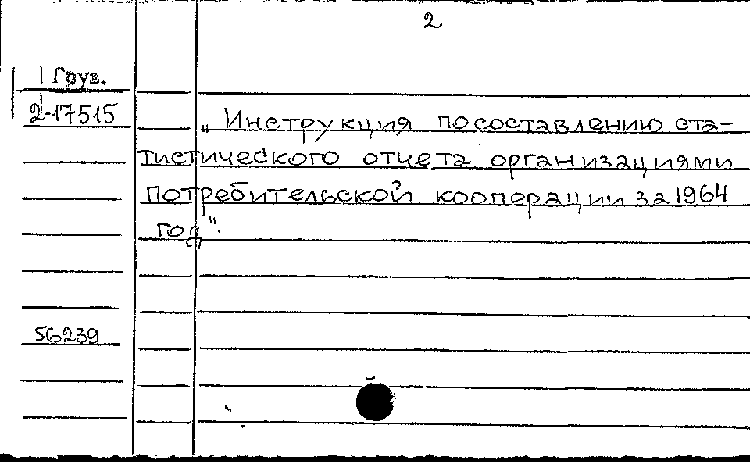 2
Груз.
2-17515
„Инструкция по составлению ста-
тистического отчета организациями
потребительской кооперации за 1964
год".
56239